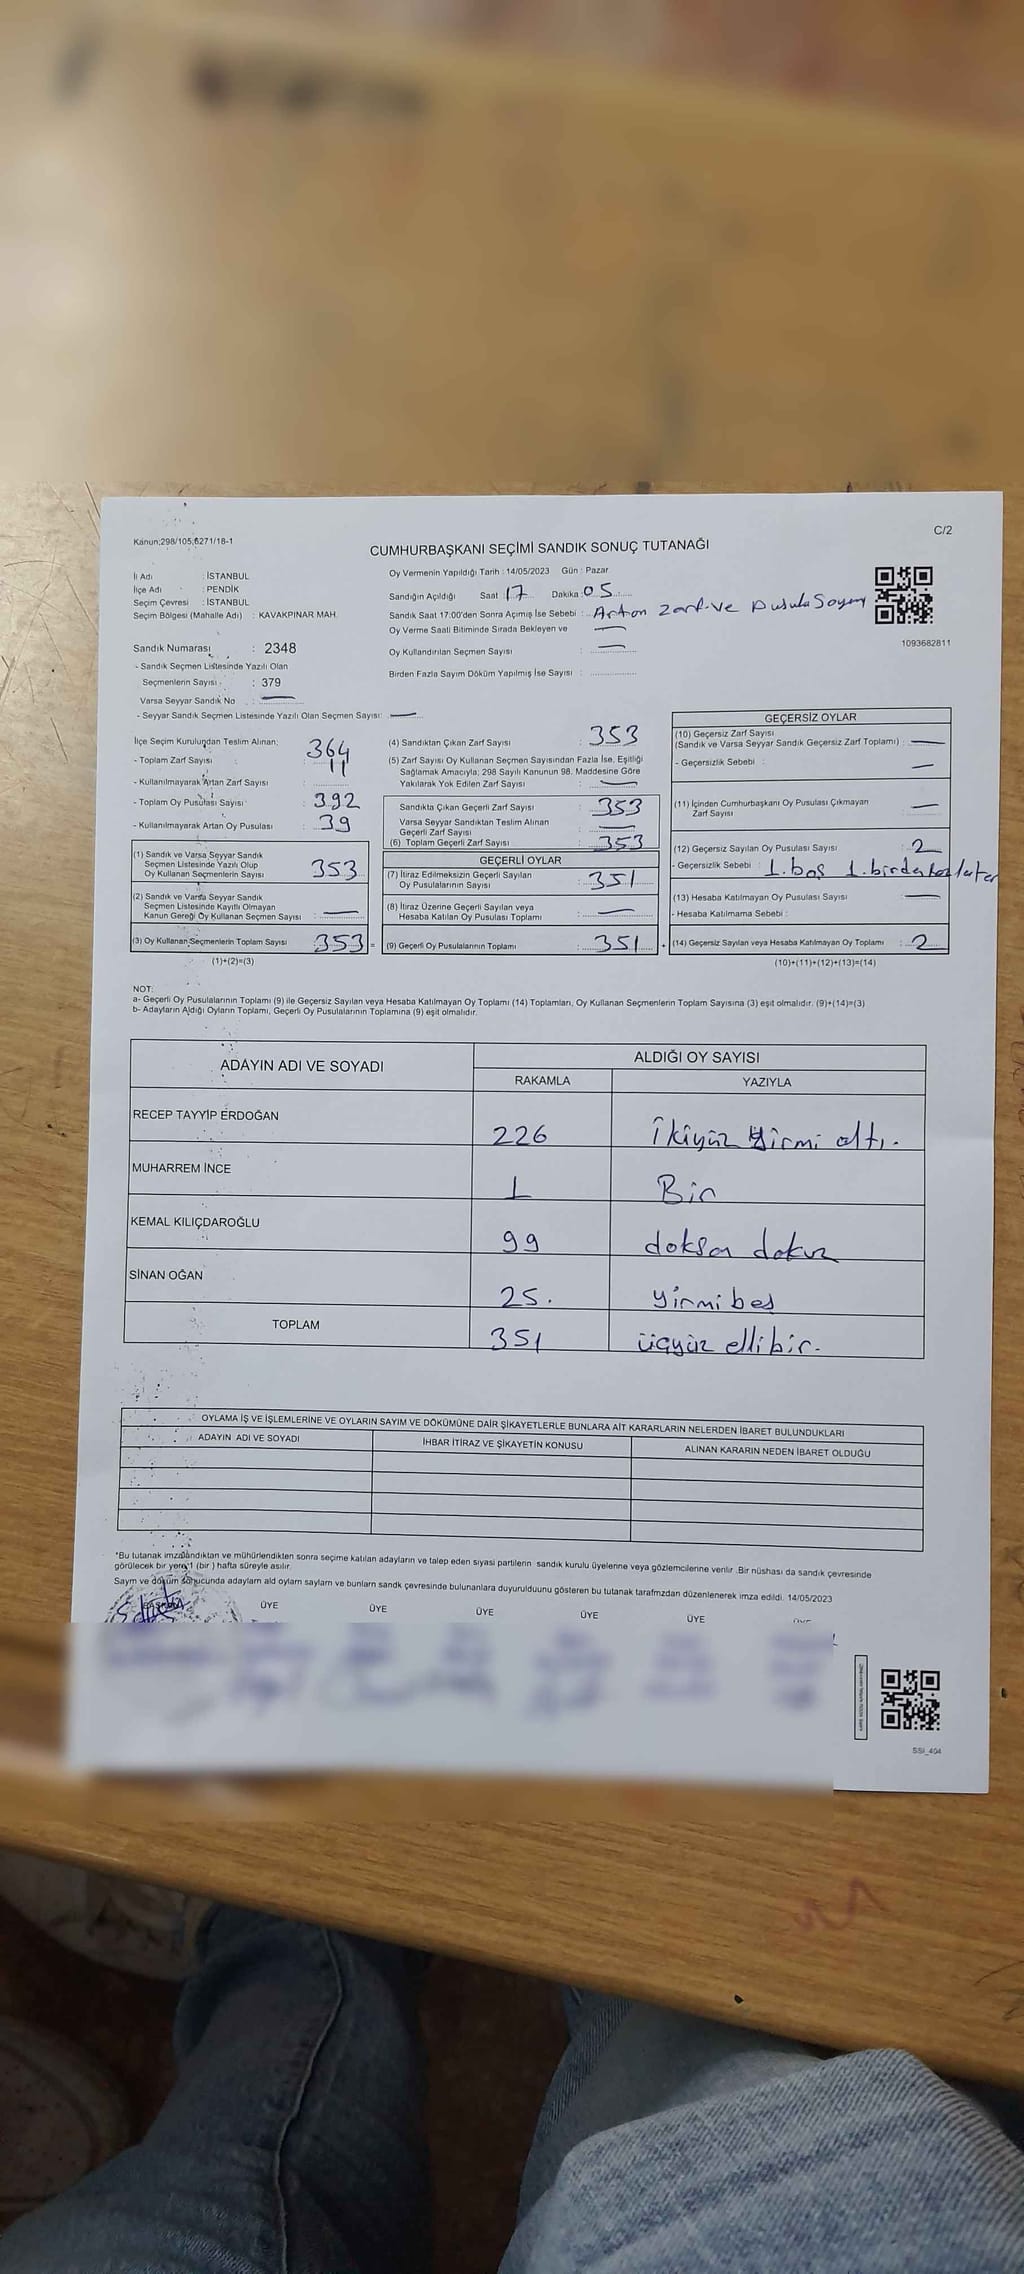 Kanun;298/105;6271/18-1
C/2
CUMHURBAŞKANI SEÇİMİ SANDIK SONUÇ TUTANAĞI
İl Adı : İSTANBUL
İlçe Adı : PENDİK
Seçim Çevresi : İSTANBUL
Seçim Bölgesi (Mahalle Adı) : KAVAKPINAR MAH.
Oy Vermenin Yapıldığı Tarih : 14/05/2023 Gün : Pazar
Sandığın Açıldığı Saat 17 Dakika : 05
Sandık Saat 17:00'den Sonra Açımış İse Sebebi : Artan Zarf ve pusula Sayımı
Oy Verme Saati Bitiminde Sırada Bekleyen ve
Oy Kullandırılan Seçmen Sayısı : —
Birden Fazla Sayım Döküm Yapılmış İse Sayısı :
1093682811
Sandık Numarası : 2348
- Sandık Seçmen Listesinde Yazılı Olan
Seçmenlerin Sayısı : 379
Varsa Seyyar Sandık No : —
- Seyyar Sandık Seçmen Listesinde Yazılı Olan Seçmen Sayısı: —
İlçe Seçim Kurulundan Teslim Alınan;
- Toplam Zarf Sayısı : 364
- Kullanılmayarak Artan Zarf Sayısı : 11
- Toplam Oy Pusulası Sayısı : 392
- Kullanılmayarak Artan Oy Pusulası : 39
(1) Sandık ve Varsa Seyyar Sandık
Seçmen Listesinde Yazılı Olup
Oy Kullanan Seçmenlerin Sayısı : 353
(2) Sandık ve Varsa Seyyar Sandık
Seçmen Listesinde Kayıtlı Olmayan
Kanun Gereği Oy Kullanan Seçmen Sayısı : —
(3) Oy Kullanan Seçmenlerin Toplam Sayısı : 353 =
(1)+(2)=(3)
(4) Sandıktan Çıkan Zarf Sayısı : 353
(5) Zarf Sayısı Oy Kullanan Seçmen Sayısından Fazla İse, Eşitliği
Sağlamak Amacıyla; 298 Sayılı Kanunun 98. Maddesine Göre
Yakılarak Yok Edilen Zarf Sayısı : —
Sandıkta Çıkan Geçerli Zarf Sayısı : 353
Varsa Seyyar Sandıktan Teslim Alınan
Geçerli Zarf Sayısı : —
(6) Toplam Geçerli Zarf Sayısı : 353
GEÇERLİ OYLAR
(7) İtiraz Edilmeksizin Geçerli Sayılan
Oy Pusulalarının Sayısı : 351
(8) İtiraz Üzerine Geçerli Sayılan veya
Hesaba Katılan Oy Pusulası Toplamı : —
(9) Geçerli Oy Pusulalarının Toplamı : 351 +
GEÇERSİZ OYLAR
(10) Geçersiz Zarf Sayısı
(Sandık ve Varsa Seyyar Sandık Geçersiz Zarf Toplamı) : —
- Geçersizlik Sebebi : —
(11) İçinden Cumhurbaşkanı Oy Pusulası Çıkmayan
Zarf Sayısı : —
(12) Geçersiz Sayılan Oy Pusulası Sayısı : 2
- Geçersizlik Sebebi : 1. boş 1. birden
(13) Hesaba Katılmayan Oy Pusulası Sayısı : —
- Hesaba Katılmama Sebebi :
(14) Geçersiz Sayılan veya Hesaba Katılmayan Oy Toplamı : 2
(10)+(11)+(12)+(13)=(14)
NOT:
a- Geçerli Oy Pusulalarının Toplamı (9) ile Geçersiz Sayılan veya Hesaba Katılmayan Oy Toplamı (14) Toplamları, Oy Kullanan Seçmenlerin Toplam Sayısına (3) eşit olmalıdır. (9)+(14)=(3)
b- Adayların Aldığı Oyların Toplamı, Geçerli Oy Pusulalarının Toplamına (9) eşit olmalıdır.
ADAYIN ADI VE SOYADI
ALDIĞI OY SAYISI
RAKAMLA YAZIYLA
RECEP TAYYİP ERDOĞAN 226 İkiyüz yirmi altı.
MUHARREM İNCE 1 Bir
KEMAL KILIÇDAROĞLU 99 doksan dokuz
SİNAN OĞAN 25. yirmi beş
TOPLAM 351 üçyüz elli bir.
OYLAMA İŞ VE İŞLEMLERİNE VE OYLARIN SAYIM VE DÖKÜMÜNE DAİR ŞİKAYETLERLE BUNLARA AİT KARARLARIN NELERDEN İBARET BULUNDUKLARI
ADAYIN ADI VE SOYADI İHBAR İTİRAZ VE ŞİKAYETİN KONUSU ALINAN KARARIN NEDEN İBARET OLDUĞU
*Bu tutanak imzalandıktan ve mühürlendikten sonra seçime katılan adayların ve talep eden siyasi partilerin sandık kurulu üyelerine veya gözlemcilerine verilir .Bir nüshası da sandık çevresinde
görülecek bir yere 1 (bir ) hafta süreyle asılır.
Sayım ve döküm sonucunda adaylarn ald oylarn saylarn ve bunlarn sandk çevresinde bulunanlara duyurulduunu gösteren bu tutanak tarafmzdan düzenlenerek imza edildi. 14/05/2023
BAŞKAN ÜYE ÜYE ÜYE ÜYE ÜYE
SSI_404